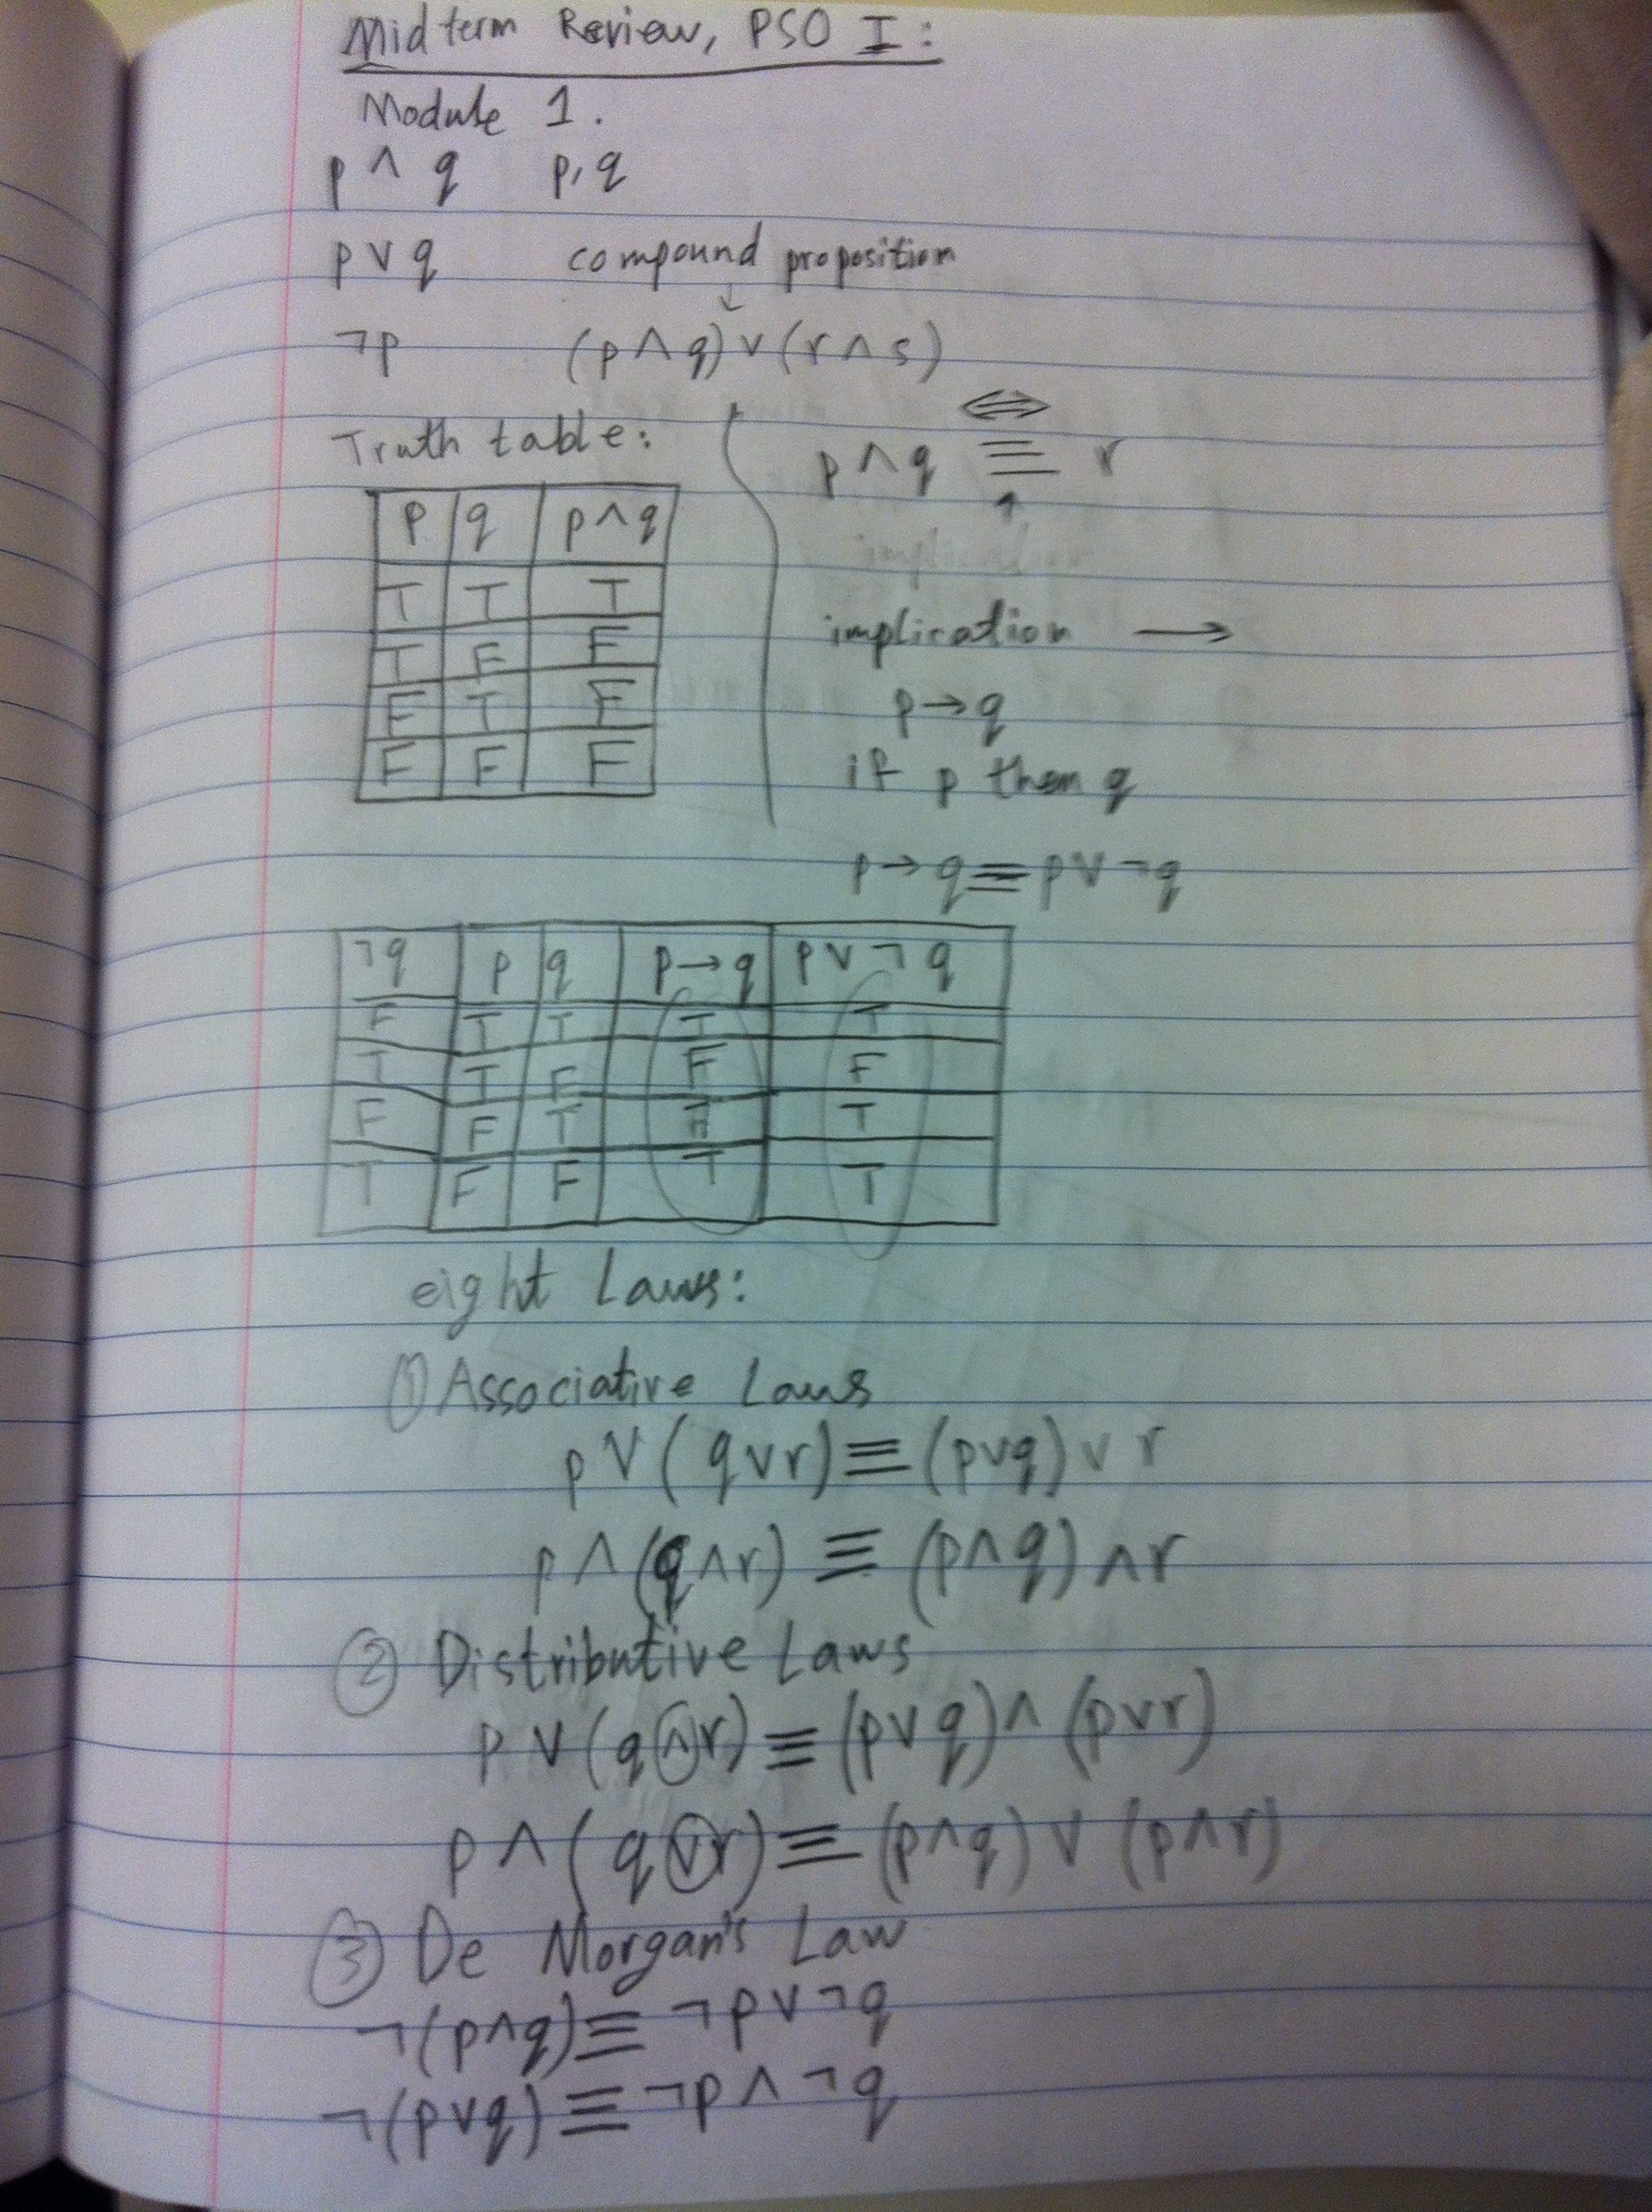 Midterm Review, PSO I:
Module 1.
p ∧ q p, q
p ∨ q compound proposition
↓
¬p (p ∧ q) ∨ (r ∧ s)
Truth table:
p q p ∧ q
T T T
T F F
F T F
F F F
⇔
p ∧ q ≡ r
↑
implication →
p → q
if p then q
p → q ≡ p ∨ ¬q
¬q p q p → q p ∨ ¬q
F T T T T
T T F F F
F F T T
T F F T T
eight Laws:
① Associative Laws
p ∨ (q ∨ r) ≡ (p ∨ q) ∨ r
p ∧ (q ∧ r) ≡ (p ∧ q) ∧ r
② Distributive Laws
p ∨ (q ∧ r) ≡ (p ∨ q) ∧ (p ∨ r)
p ∧ (q ∨ r) ≡ (p ∧ q) ∨ (p ∧ r)
③ De Morgan's Law
¬(p ∧ q) ≡ ¬p ∨ ¬q
¬(p ∨ q) ≡ ¬p ∧ ¬q